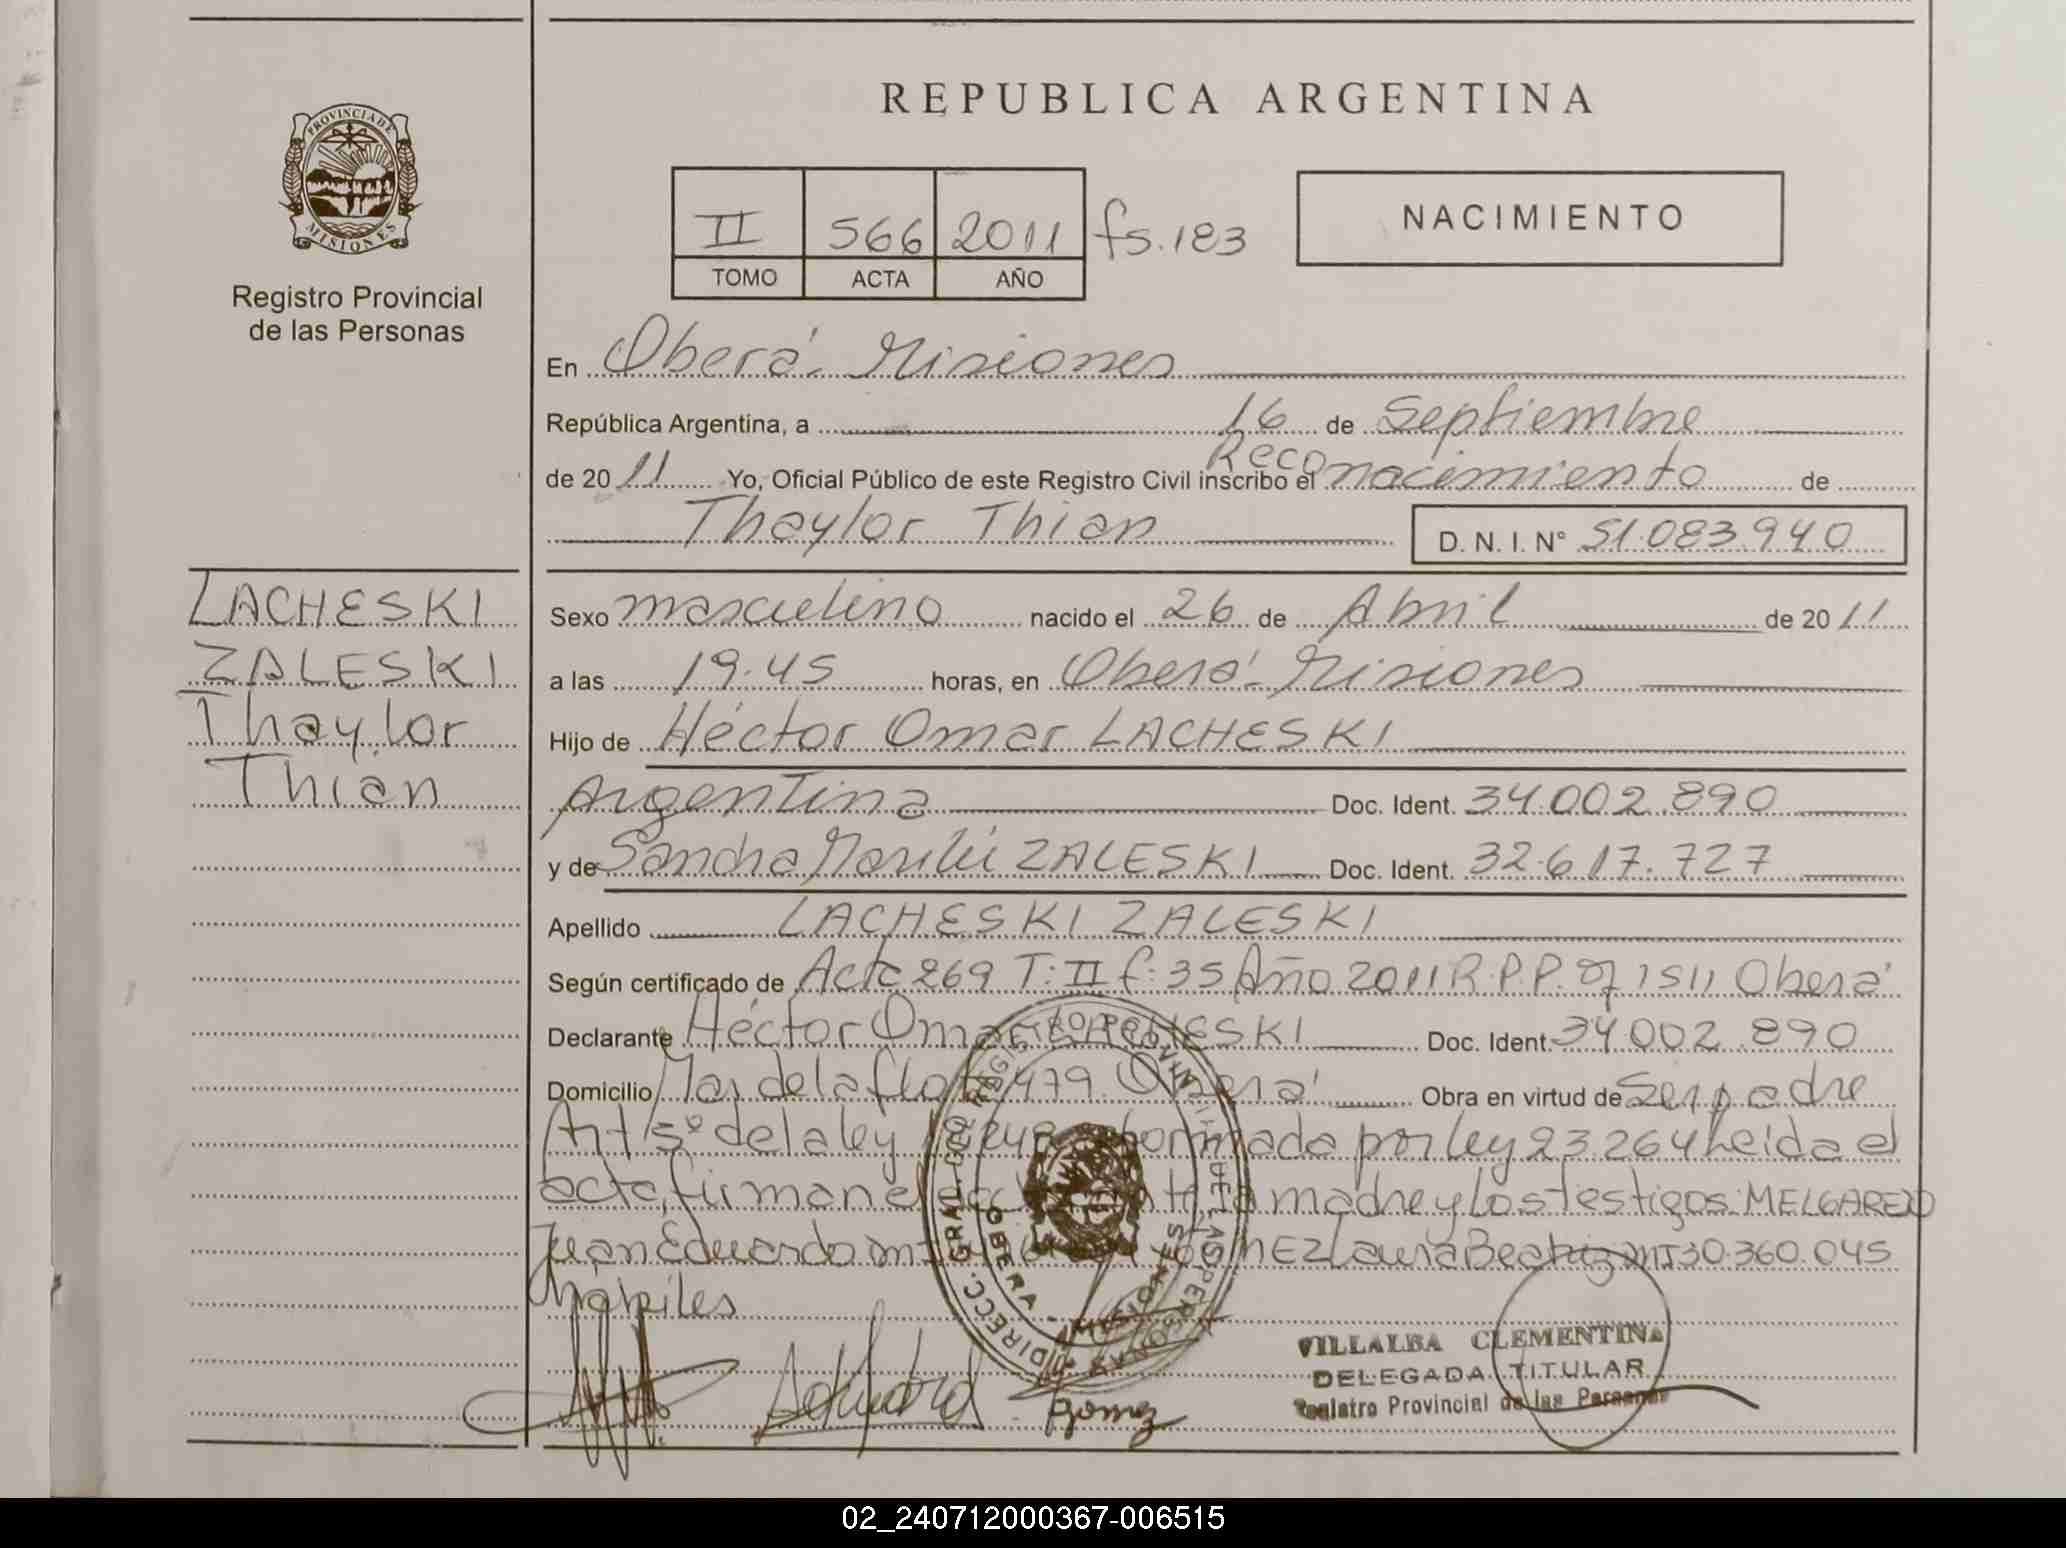 REPUBLICA ARGENTINA
PROVINCIA DE
MISIONES
Registro Provincial
de las Personas
II 566 2011 fs. 183
TOMO ACTA AÑO
NACIMIENTO
En Oberá - Misiones
República Argentina, a 16 de Septiembre
Reco
de 2011 Yo, Oficial Público de este Registro Civil inscribo el nacimiento de
Thaylor Thian D. N. I. N° 51.083.940
LACHESKI
ZALESKI
Thaylor
Thian
Sexo masculino nacido el 26 de Abril de 2011
a las 19.45 horas, en Oberá - Misiones
Hijo de Héctor Omar LACHESKI
Argentina Doc. Ident. 34.002.890
y de Sandra Marilú ZALESKI Doc. Ident. 32.617.727
Apellido LACHESKI ZALESKI
Según certificado de Acta 269 T: II f: 35 Año 2011 R.P.P. Of 1511 Oberá
Declarante Héctor Omar LACHESKI Doc. Ident. 34.002.890
Domicilio Mar del a 479. Oberá Obra en virtud de Ser padre
Art 5º de la ley por ley 23.264 Leída el
acta, firman el la madre y los testigos: MELGAREJO
Juan Eduardo Laura Beatriz MI 30.360.045
hábiles
DIRECC. GRAL. DEL REGISTRO PROVINCIAL DE LAS PERSONAS
OBERA - MISIONES
Gomez
VILLALBA CLEMENTINA
DELEGADA TITULAR
Registro Provincial de las Personas
02_240712000367-006515